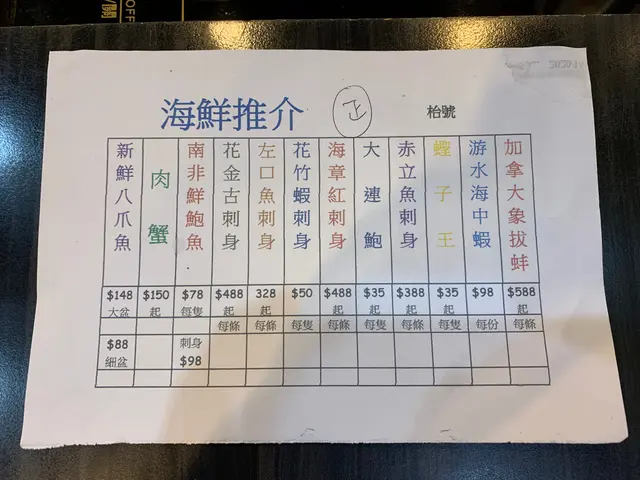 海鮮推介
正
枱號
新鮮八爪魚
肉蟹
南非鮮鮑魚
花金古刺身
左口魚刺身
花竹蝦刺身
海章紅刺身
大連鮑
赤立魚刺身
蟶子王
游水海中蝦
加拿大象拔蚌
$148 $150 $78 $488 328 $50 $488 $35 $388 $35 $98 $588
大盆 起 每隻 起 起 起 起 起 起 起
每條 每條 每隻 每條 每隻 每條 每隻 每份 每條
$88 刺身
細盆 $98